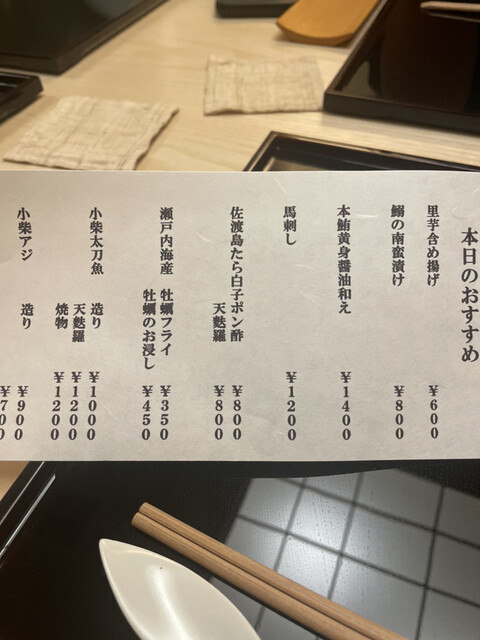 本日のおすすめ
里芋含め揚げ ¥600
鰯の南蛮漬け ¥800
本鮪黄身醤油和え ¥1400
馬刺し ¥1200
佐渡島たら白子ポン酢 ¥800
天麩羅 ¥800
瀬戸内海産 牡蠣フライ ¥350
牡蠣のお浸し ¥450
小柴太刀魚 造り ¥1000
天麩羅 ¥1200
焼物 ¥1200
小柴アジ 造り ¥900
¥700